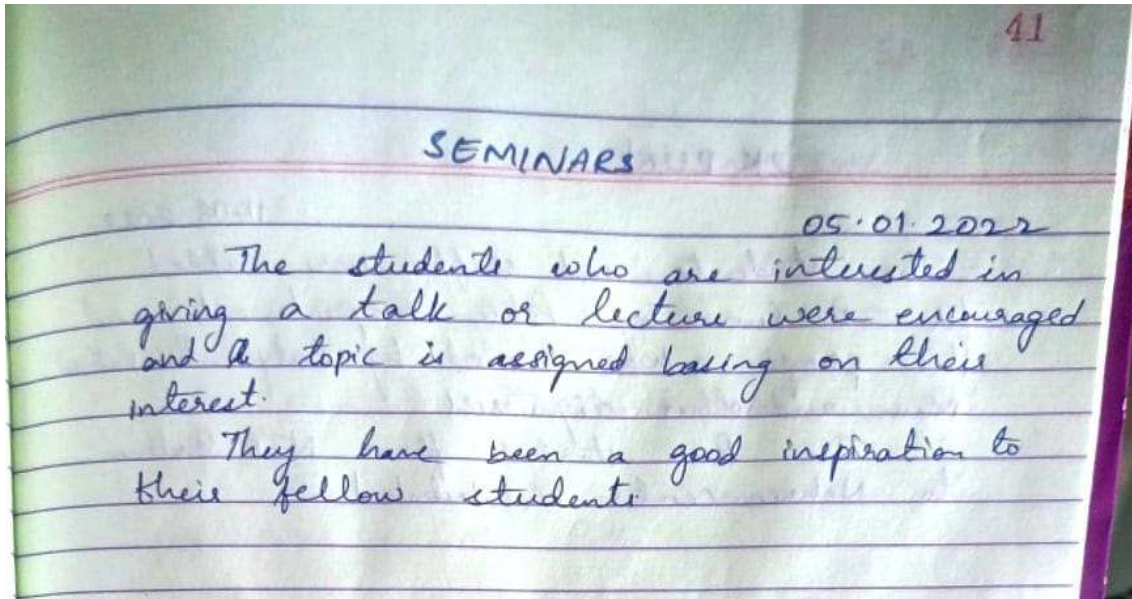 41
SEMINARS
05.01.2022
The students who are interested in
giving a talk or lecture were encouraged
and a topic is assigned basing on their
interest.
They have been a good inspiration to
their fellow students.